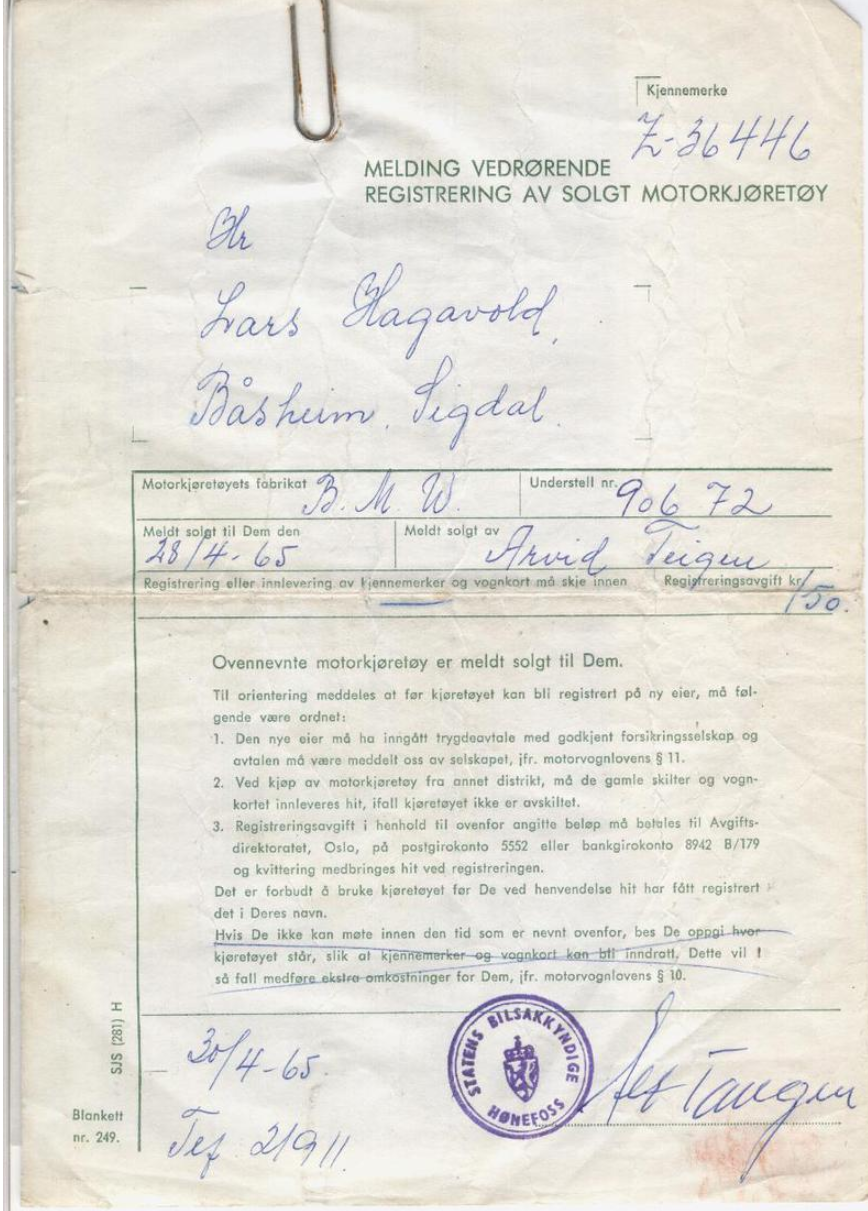 Kjennemerke
Z-36446
MELDING VEDRØRENDE
REGISTRERING AV SOLGT MOTORKJØRETØY
Hr
Lars Hagavold,
Båsheim, Sigdal.
Motorkjøretøyets fabrikat B. M. W.
Understell nr. 906 72
Meldt solgt til Dem den 28/4-65
Meldt solgt av Arvid Teigen
Registrering eller innlevering av kjennemerker og vognkort må skje innen
Registreringsavgift kr. 150.
Ovennevnte motorkjøretøy er meldt solgt til Dem.
Til orientering meddeles at før kjøretøyet kan bli registrert på ny eier, må føl-
gende være ordnet:
1. Den nye eier må ha inngått trygdeavtale med godkjent forsikringsselskap og
avtalen må være meddelt oss av selskapet, jfr. motorvognlovens § 11.
2. Ved kjøp av motorkjøretøy fra annet distrikt, må de gamle skilter og vogn-
kortet innleveres hit, ifall kjøretøyet ikke er avskiltet.
3. Registreringsavgift i henhold til ovenfor angitte beløp må betales til Avgifts-
direktoratet, Oslo, på postgirokonto 5552 eller bankgirokonto 8942 B/179
og kvittering medbringes hit ved registreringen.
Det er forbudt å bruke kjøretøyet før De ved henvendelse hit har fått registrert
det i Deres navn.
Hvis De ikke kan møte innen den tid som er nevnt ovenfor, bes De oppgi hvor
kjøretøyet står, slik at kjennemerker og vognkort kan bli inndratt. Dette vil i
så fall medføre ekstra omkostninger for Dem, jfr. motorvognlovens § 10.
30/4-65.
STATENS BILSAKKYNDIGE
HØNEFOSS
Tangen
Tef. 21911.
SJS (281) H
Blankett
nr. 249.